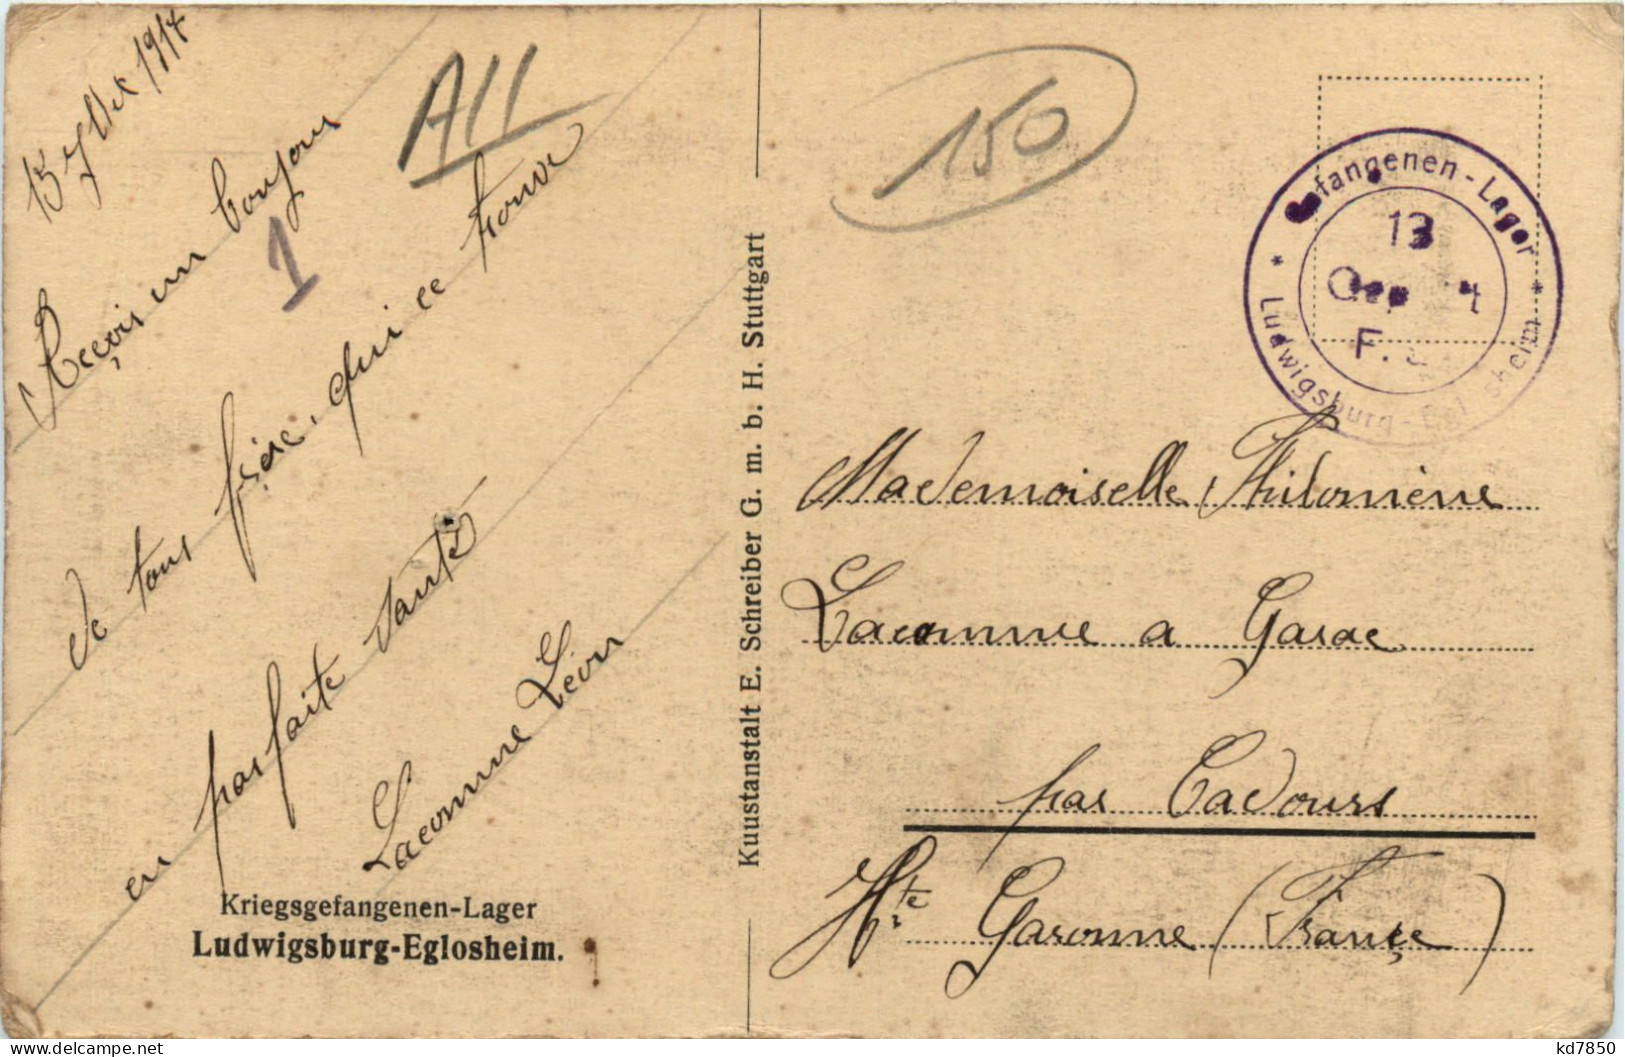 1917
A11
150
1
Reçois un bonjour
de tous frère. qui ce trouve
en parfaite santé
Lacomme Léon
Kriegsgefangenen-Lager
Ludwigsburg-Eglosheim.
Kuustanstalt E. Schreiber G. m. b. H. Stuttgart
Gefangenen-Lager
13
F.
* Ludwigsburg-Eglosheim *
Mademoiselle Philomène
Lacomme a Garac
par Cadours
Hte Garonne (France)
kd7850